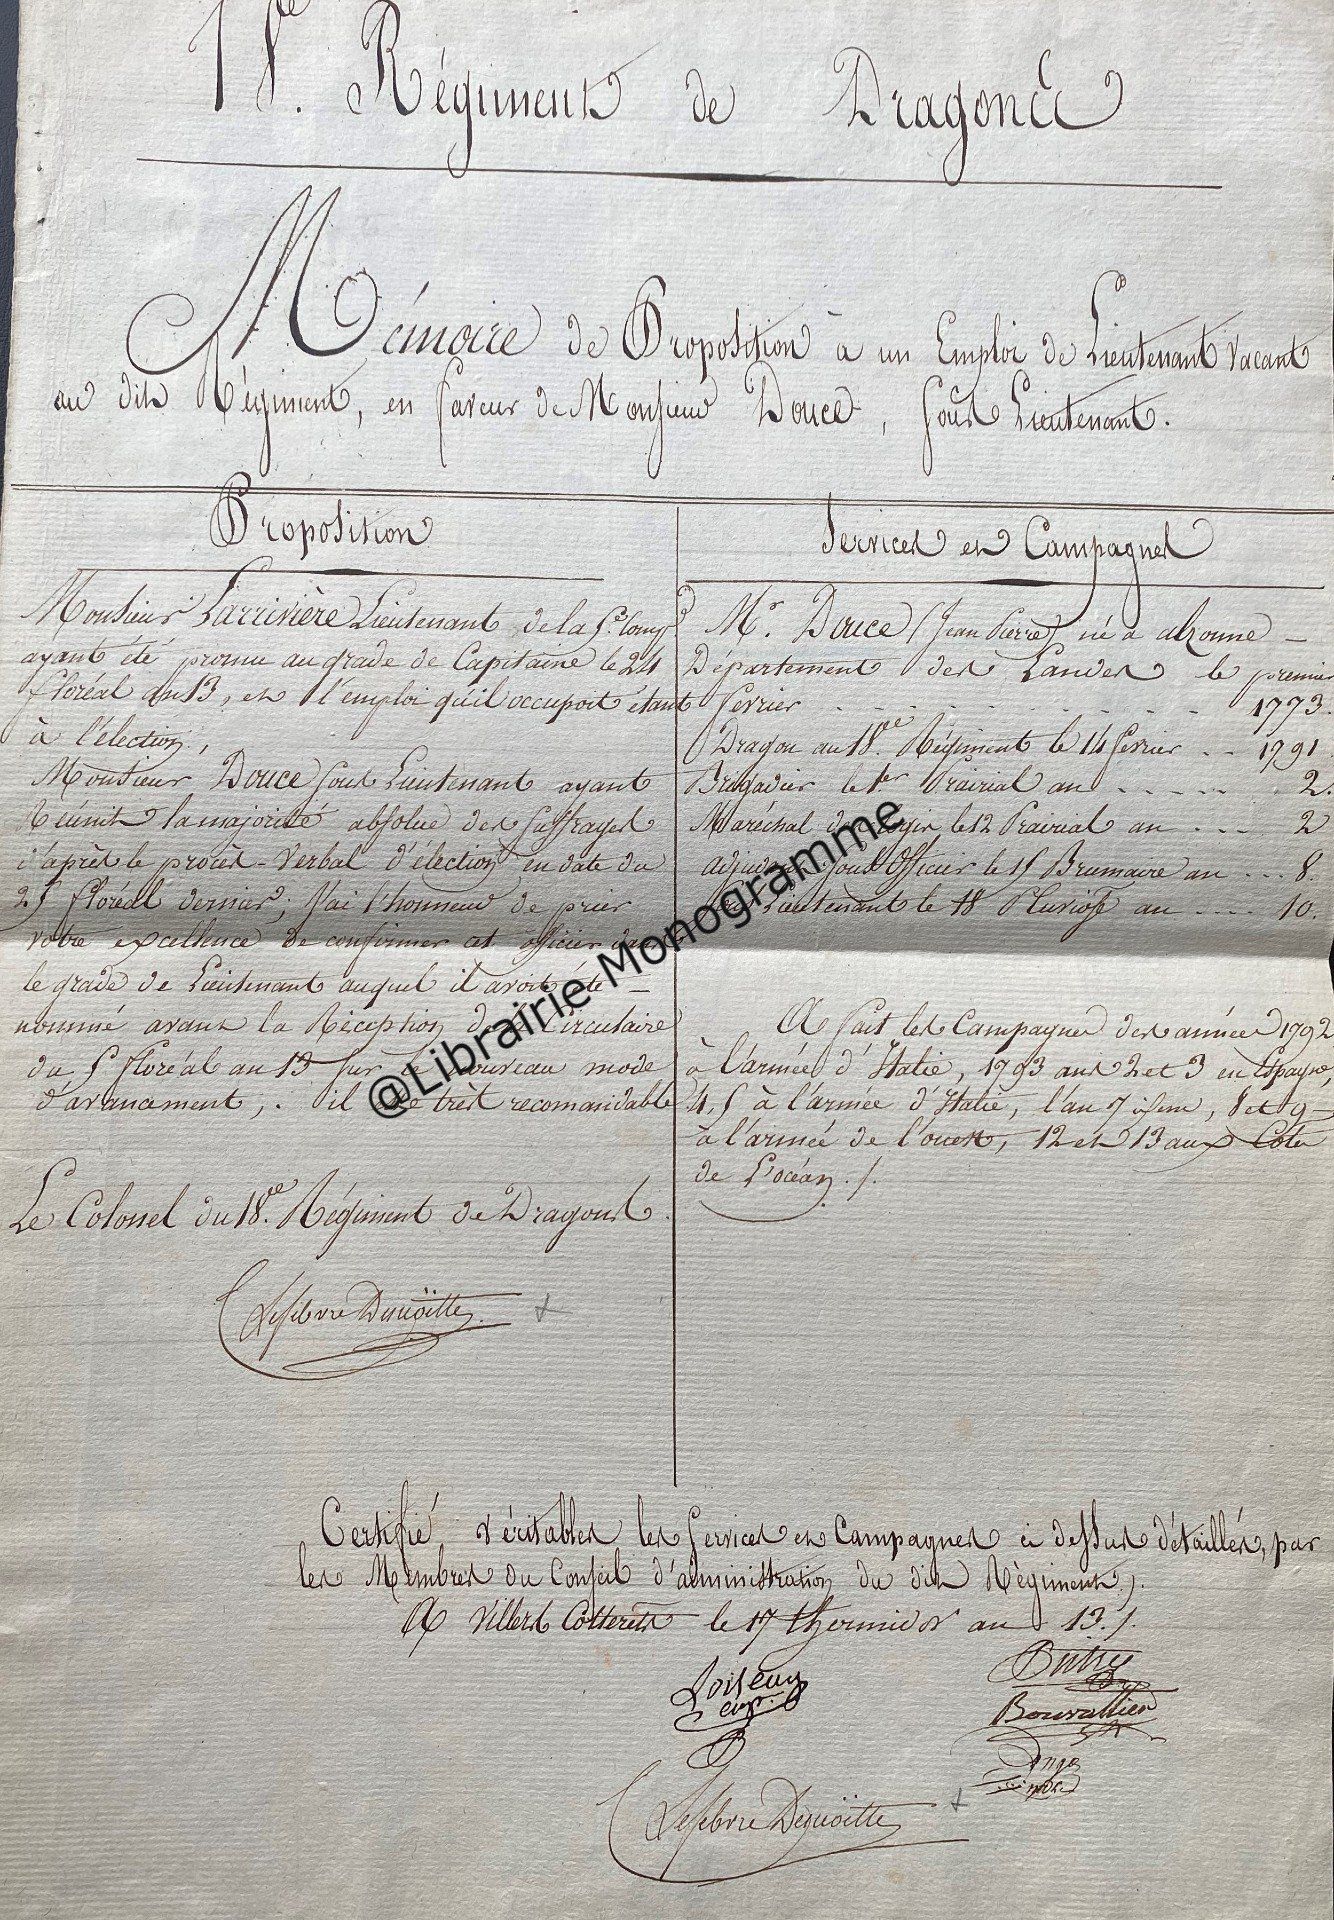 18.e Régiment de Dragons
Mémoire de Proposition à un Emploi de Lieutenant vacant
au dit Régiment, en faveur de Monsieur Douce, Sous Lieutenant.
Proposition
Monsieur Larrivière Lieutenant de la 5.e Comp.
ayant été promu au grade de Capitaine le 24
floréal an 13, et l'emploi qu'il occupoit étant
à l'élection,
Monsieur Douce Sous Lieutenant ayant
Réunit la majorité absolue des suffrages
d'après le procès-verbal d'élection en date du
25 floréal dernier, J'ai l'honneur de prier
votre excellence de confirmer cet officier dans
le grade de Lieutenant auquel il avoit été
nommé avant la Réception de la Circulaire
du 5 floréal an 13 sur le nouveau mode
d'avancement, il est très recomandable
Le Colonel du 18.e Régiment de Dragons
Lefebvre Desnöitte
Services et Campagnes
M.r Douce (Jean Pierre) né à
Département des Landes le premier
fevrier 1773.
Dragon au 18.e Régiment le 14 fevrier 1791
Brigadier le 1er Prairial an 2.
Maréchal des logis le 12 Prairial an 2
adjudant sous Officier le 15 Brumaire an 8.
Sous Lieutenant le 18 Pluviose an 10.
A fait les Campagnes des années 1792
à l'armée d'Italie, 1793 ans 2 et 3 en Espagne,
4, 5 à l'armée d'Italie, l'an 7 idem, 8 et 9
à l'armée de l'ouest, 12 et 13 aux Cotes
de l'océan ./.
Certifié véritables les Services et Campagnes ci dessus détaillés, par
les Membres du Conseil d'administration du dit Régiment,
A Villers Cotterets le 17 thermidor an 13./.
Loiseau
cap.
Bouvattier
Lefebvre Desnöitte
@Librairie Monogramme